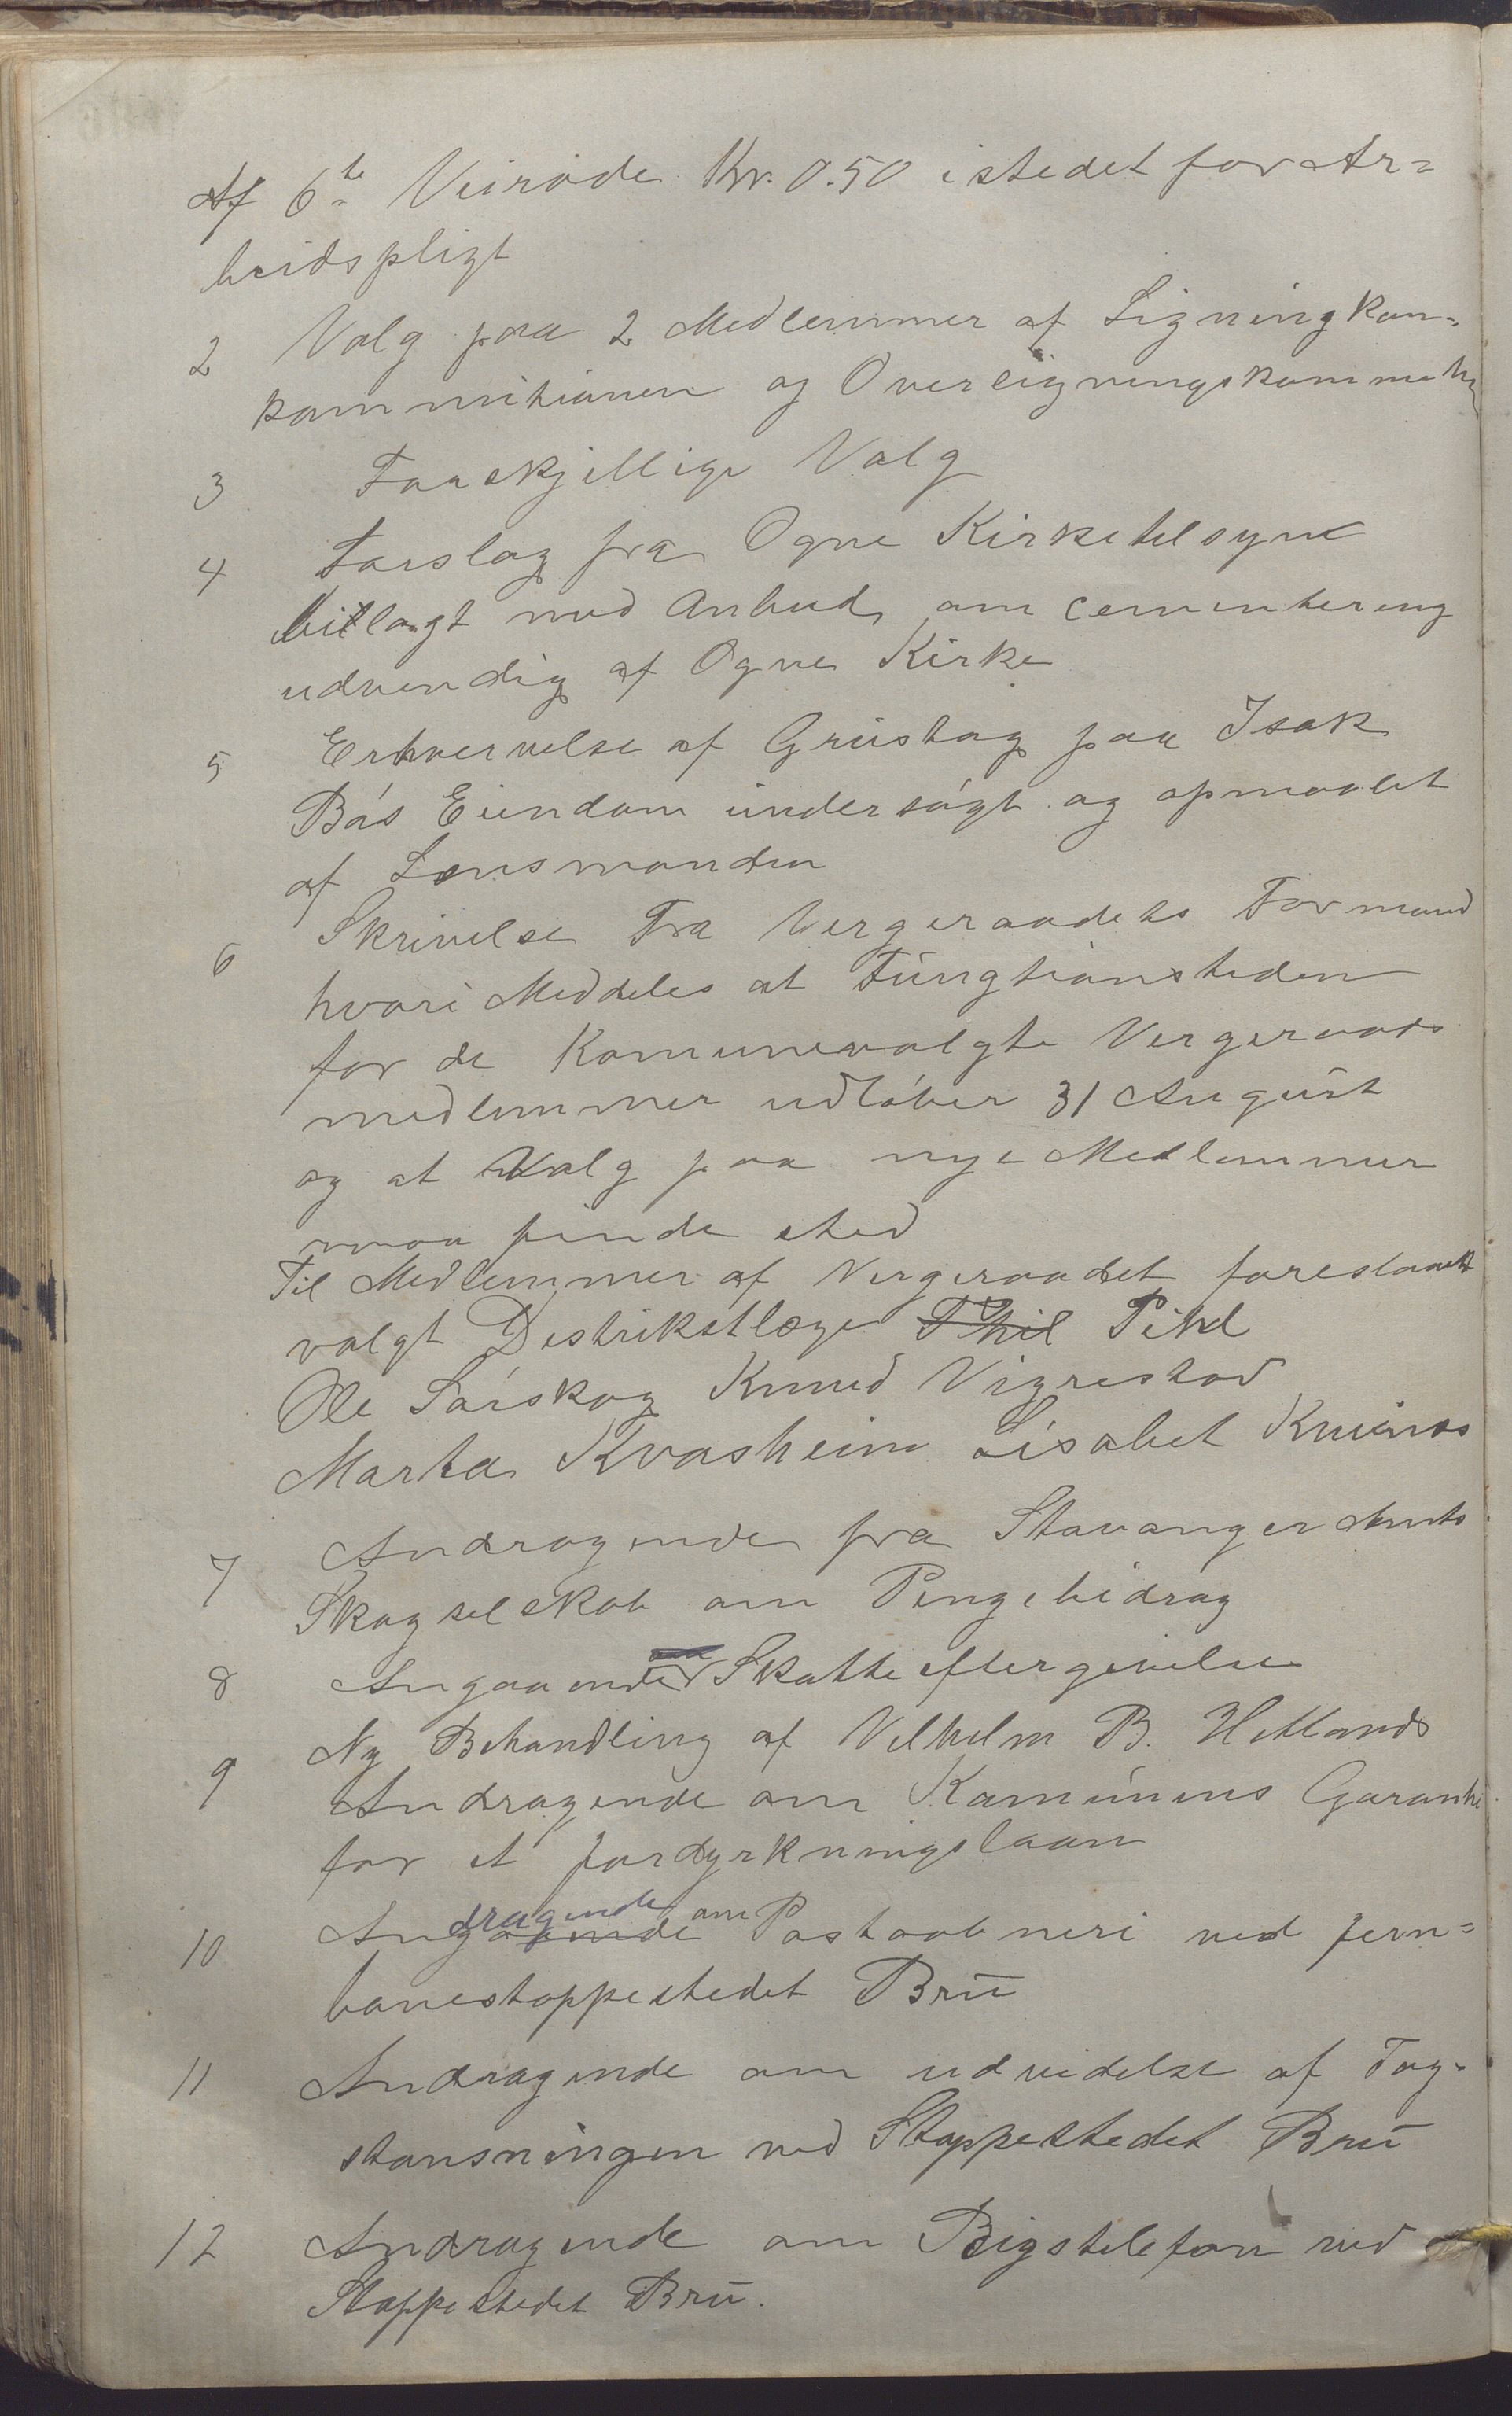 Af 6te Veirode Kr. 0.50 istedet for Ar=
beidspligt
2 Valg paa 2 Medlemmer af Ligningkon=
kommitionen og Overligningskomme
3 Forskjellige Valg
4 Forslag fra Ogne Kirketilsyn
bilagt med Anbud om cementering
udvendig af Ogne Kirke
5 Erhvervelse af Grustag paa Isak
Bøs Eiendom undersøgt og opmaalet
af Lensmanden
6 Skrivelse Fra Vergeraadets Formand
hvori Meddeles at Fungtionstiden
for de Komunevalgte Vergeraads
medlemmer udløber 31 August
og at Valg paa nye Medlemmer
maa finde sted
Til Medlemmer af Vergeraadet foreslaaet
valgt Destrikstlæge Phil Pihl
Ole Sørskog Knud Vigrestad
Marta Kvasheim Lisabet
7 Andragende fra Stavanger Amts
Skogselskab om Pengebidrag
8 Angaaende Skatteeftergivelse
9 Ny Behandling af Vilhelm B. Hetlands
Andragende om Komunens Garanti
for et Jordyrkningslaan
10 Andragende om Postaabneri ved Jern=
banestoppestedet Bru
11 Andragende om udvidelse af Tog=
stansningen ved Stoppestedet Bru
12 Andragende om Rigstelefon ved
Stoppestedet Bru.